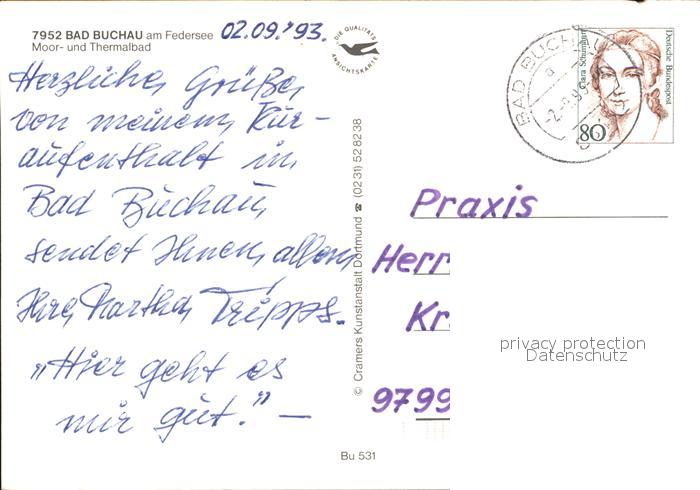 7952 BAD BUCHAU am Federsee
Moor- und Thermalbad
02.09.'93.
DIE QUALITÄTS
ANSICHTSKARTE
Herzliche Grüße
von meinem Kur-
aufenthalt in
Bad Buchau,
sendet Ihnen allen
Ihre Martha Tripps.
"Hier geht es
mir gut." —
© Cramers Kunstanstalt Dortmund ☎ (0231) 528238
Bu 531
BAD BUCHAU
a
Clara Schumann
Deutsche Bundespost
80
Praxis
Herr
Kr
9799
privacy protection
Datenschutz